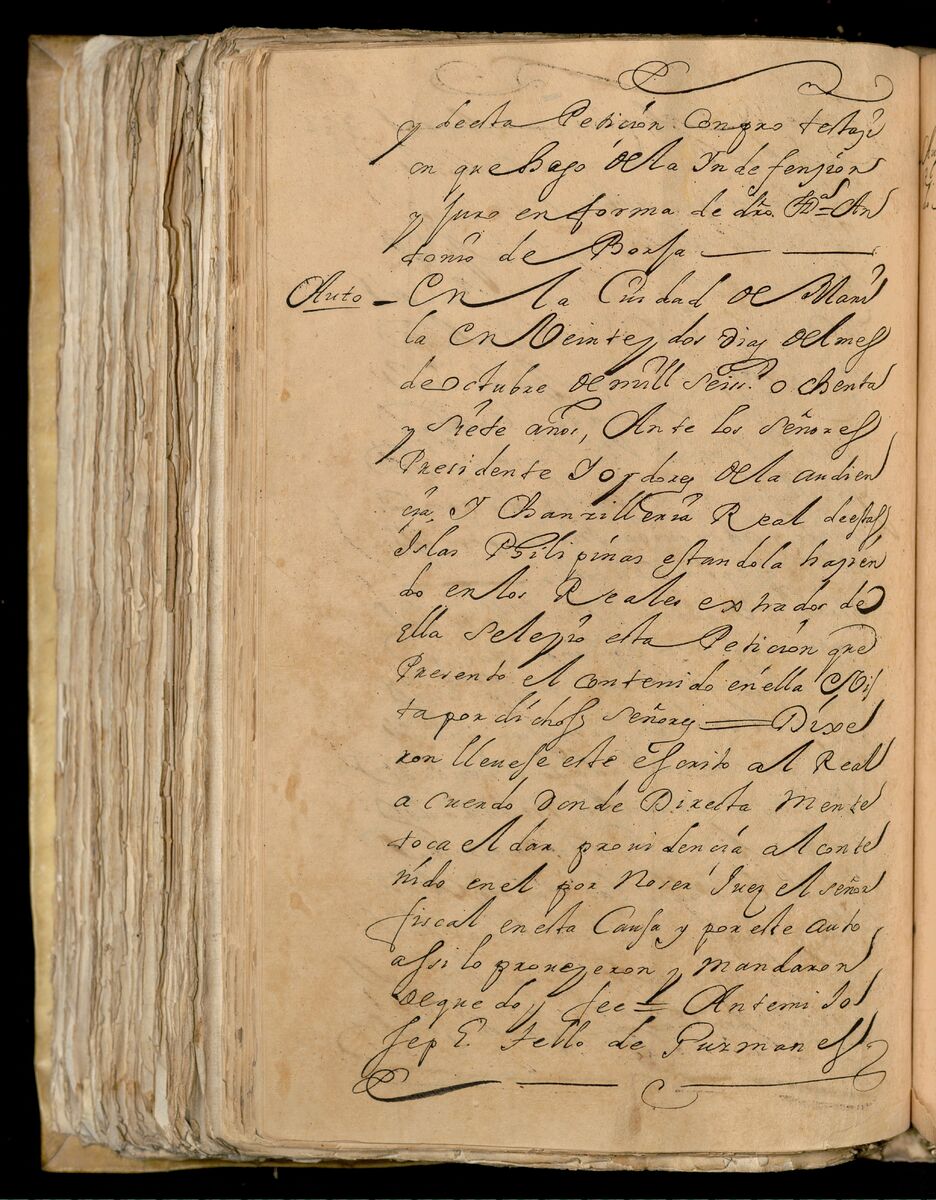 y de esta Peticion Con pro testaçi
on que hago de la Yn defenssion
y juro en forma de dro. Fr. An
tonio de Borja
Auto - En la Ciudad de Mani
la En Veinte y dos dias del mes
de octubre de mill seiss.º ochenta
y siete años, Ante los señores
Presidente Y oydores de la audien
çia, Y Chanzilleria Real de estas
Islas Philipinas estandola haçien
do en los Reales extrados de
Ella se leyo esta Peticion que
Presento el contenido en ella Vis
ta por dichos señores Dixe
ron lleuese este escrito al Real
a cuerdo Donde Directa Mente
toca el dar prouidencia al conte
nido en el por No ser Juez el señor
fiscal en esta Causa y por este auto
assi lo proveyeron y Mandaron
de que doy fee Ante mi Jo
sep E. Tello de Guzman es